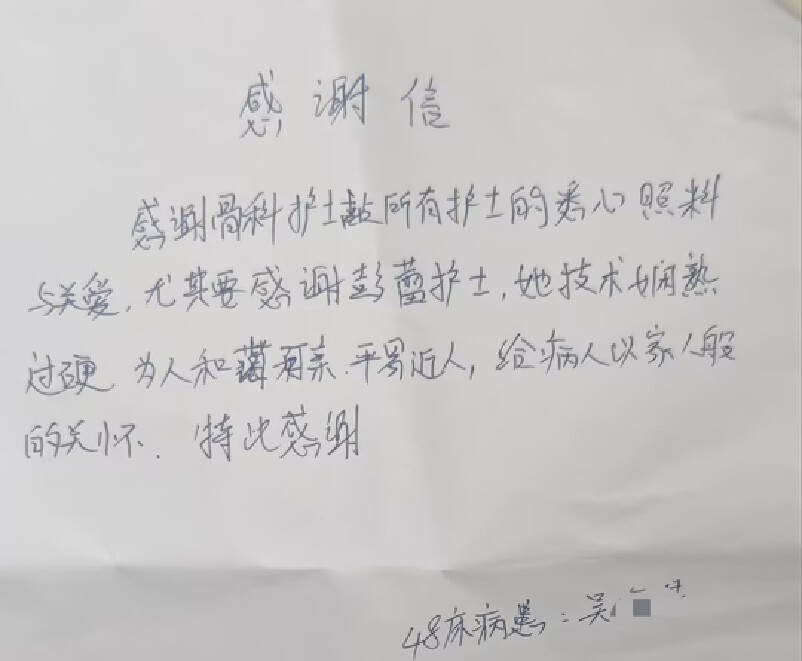 感谢信
感谢骨科护士站所有护士的悉心照料
与关爱,尤其要感谢彭蕾护士,她技术娴熟
过硬,为人和蔼可亲,平易近人,给病人以家人般
的关怀.特此感谢
48床病患:吴